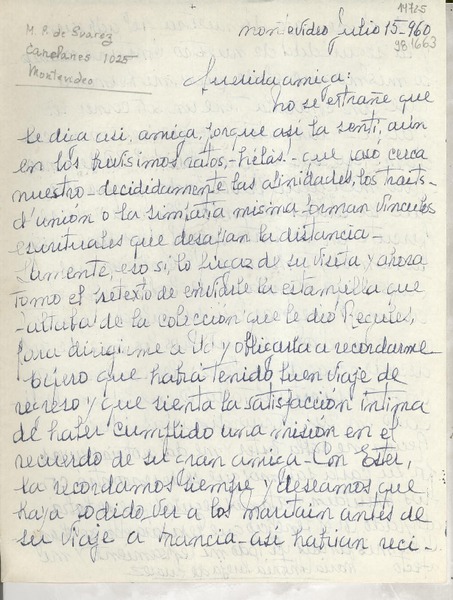 14725
M. P. de Suarez
Canelones 1025
Montevideo
Montevideo Julio 15-960
981663
Querida amiga:
no se extrañe que
le diga asi, amiga, porque así la sentí, aún
en los brevísimos ratos, - hélas! - que pasó cerca
nuestro - decididamente las afinidades, los traits-
d'union o la simpatía misma forman vínculos
espirituales que desafian la distancia -
Lamenté, eso sí, lo fugaz de su visita y ahora
tomo el pretexto de enviarle la estampilla que
faltaba de la colección que le dió Regules,
para dirigirme a Ud y obligarla a recordarme
Espero que habrá tenido buen viaje de
regreso y que sienta la satisfacción íntima
de haber cumplido una misión en el
recuerdo de su gran amiga - Con Ester,
la recordamos siempre y deseamos que
haya podido ver a los Maritain antes de
su viaje a Francia - así habrían reci-